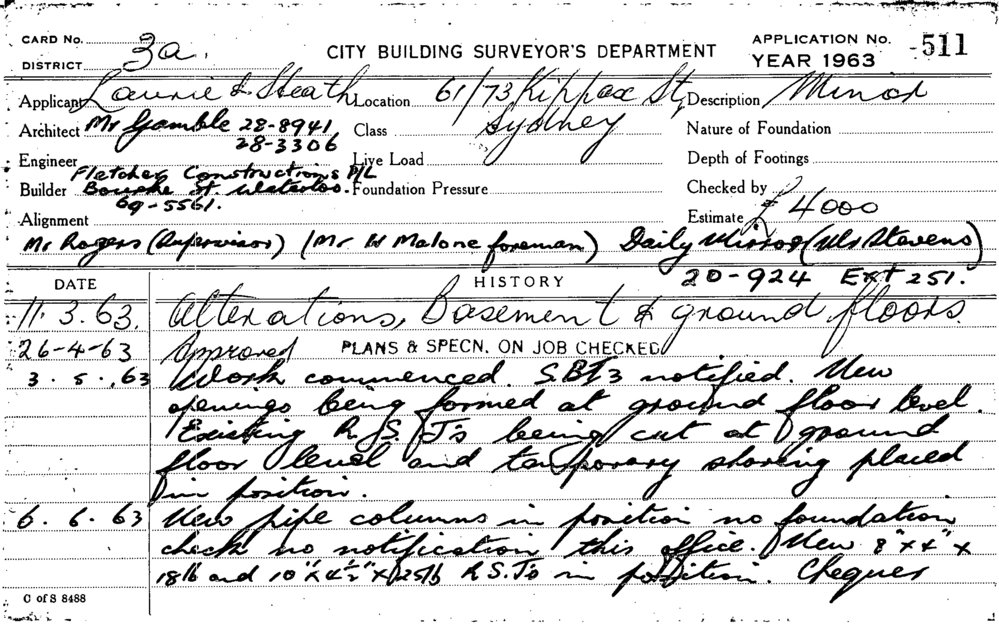 CARD No.
DISTRICT 3a.
CITY BUILDING SURVEYOR'S DEPARTMENT
APPLICATION No. 511
YEAR 1963
Applicant Laurie & Heath Location 61/73 Kippax St, Description Minor
Sydney
Architect Mr Gamble 28-8941 Class Nature of Foundation
28-3306
Engineer Live Load Depth of Footings
Fletcher Constructions P/L
Builder Bourke St. Waterloo. Foundation Pressure Checked by
69-5561.
Alignment Estimate £4000
Mr Rogers (Supervisor) (Mr W Malone foreman) Daily Mirror (Mr Stevens)
20-924 Ext 251.
DATE HISTORY
11.3.63. Alterations, Basement & ground floors.
26-4-63 Approved PLANS & SPECN. ON JOB CHECKED
3.5.63 Work commenced. S.B.I 3 notified. New
openings being formed at ground floor level.
Existing R.S.J's being cut at ground
floor level and temporary shoring placed
in position.
6.6.63 New pipe columns in position no foundation
check no notification this office. New 8" x 4" x
18lb and 10" x 4½" x 25lb R.S.J's in position. Chequer
C of S 8488